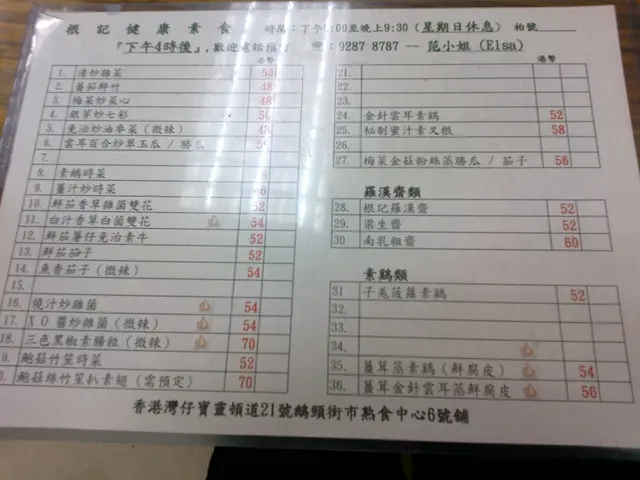 根記健康素食 時間：下午6:00至晚上9:30（星期日休息） 枱號
『下午4時後』，歡迎電話預訂 ☎：9287 8787 -- 范小姐 (Elsa)
港幣
1. 清炒雜菜 50
2. 蕃茄鮮竹 48
3. 梅菜炒菜心 48
4. 銀芽炒七彩 56
5. 免治炒油麥菜（微辣） 48
6. 雲耳百合炒翠玉瓜 / 勝瓜
7.
8. 素鵝時菜
9. 薑汁炒時菜
10. 鮮茄香草雜菌雙花 52
11. 白汁香草白菌雙花 54
12. 鮮茄薯仔免治素牛 52
13. 鮮茄茄子 52
14. 魚香茄子（微辣） 54
15.
16. 燒汁炒雜菌 54
17. X O 醬炒雜菌（微辣） 54
18. 三色黑椒素腸粒（微辣） 70
9. 鮑菇竹笙時菜 52
0. 鮑菇絲竹笙扒素翅（需預定） 70
港幣
21.
22.
23.
24. 金針雲耳素鷄 52
25. 秘制蜜汁素叉根 58
26.
27. 梅菜金菇粉絲蒸勝瓜 / 茄子 56
羅漢齋類
28. 根記羅漢齋 52
29. 梁生齋 52
30 南乳粗齋 60
素鷄類
31 子羌菠蘿素鷄 52
32.
33.
34.
35. 薑茸蒸素鷄（鮮腐皮） 54
36. 薑茸金針雲耳蒸鮮腐皮 56
香港灣仔寶靈頓道21號鵝頸街市熟食中心6號舖